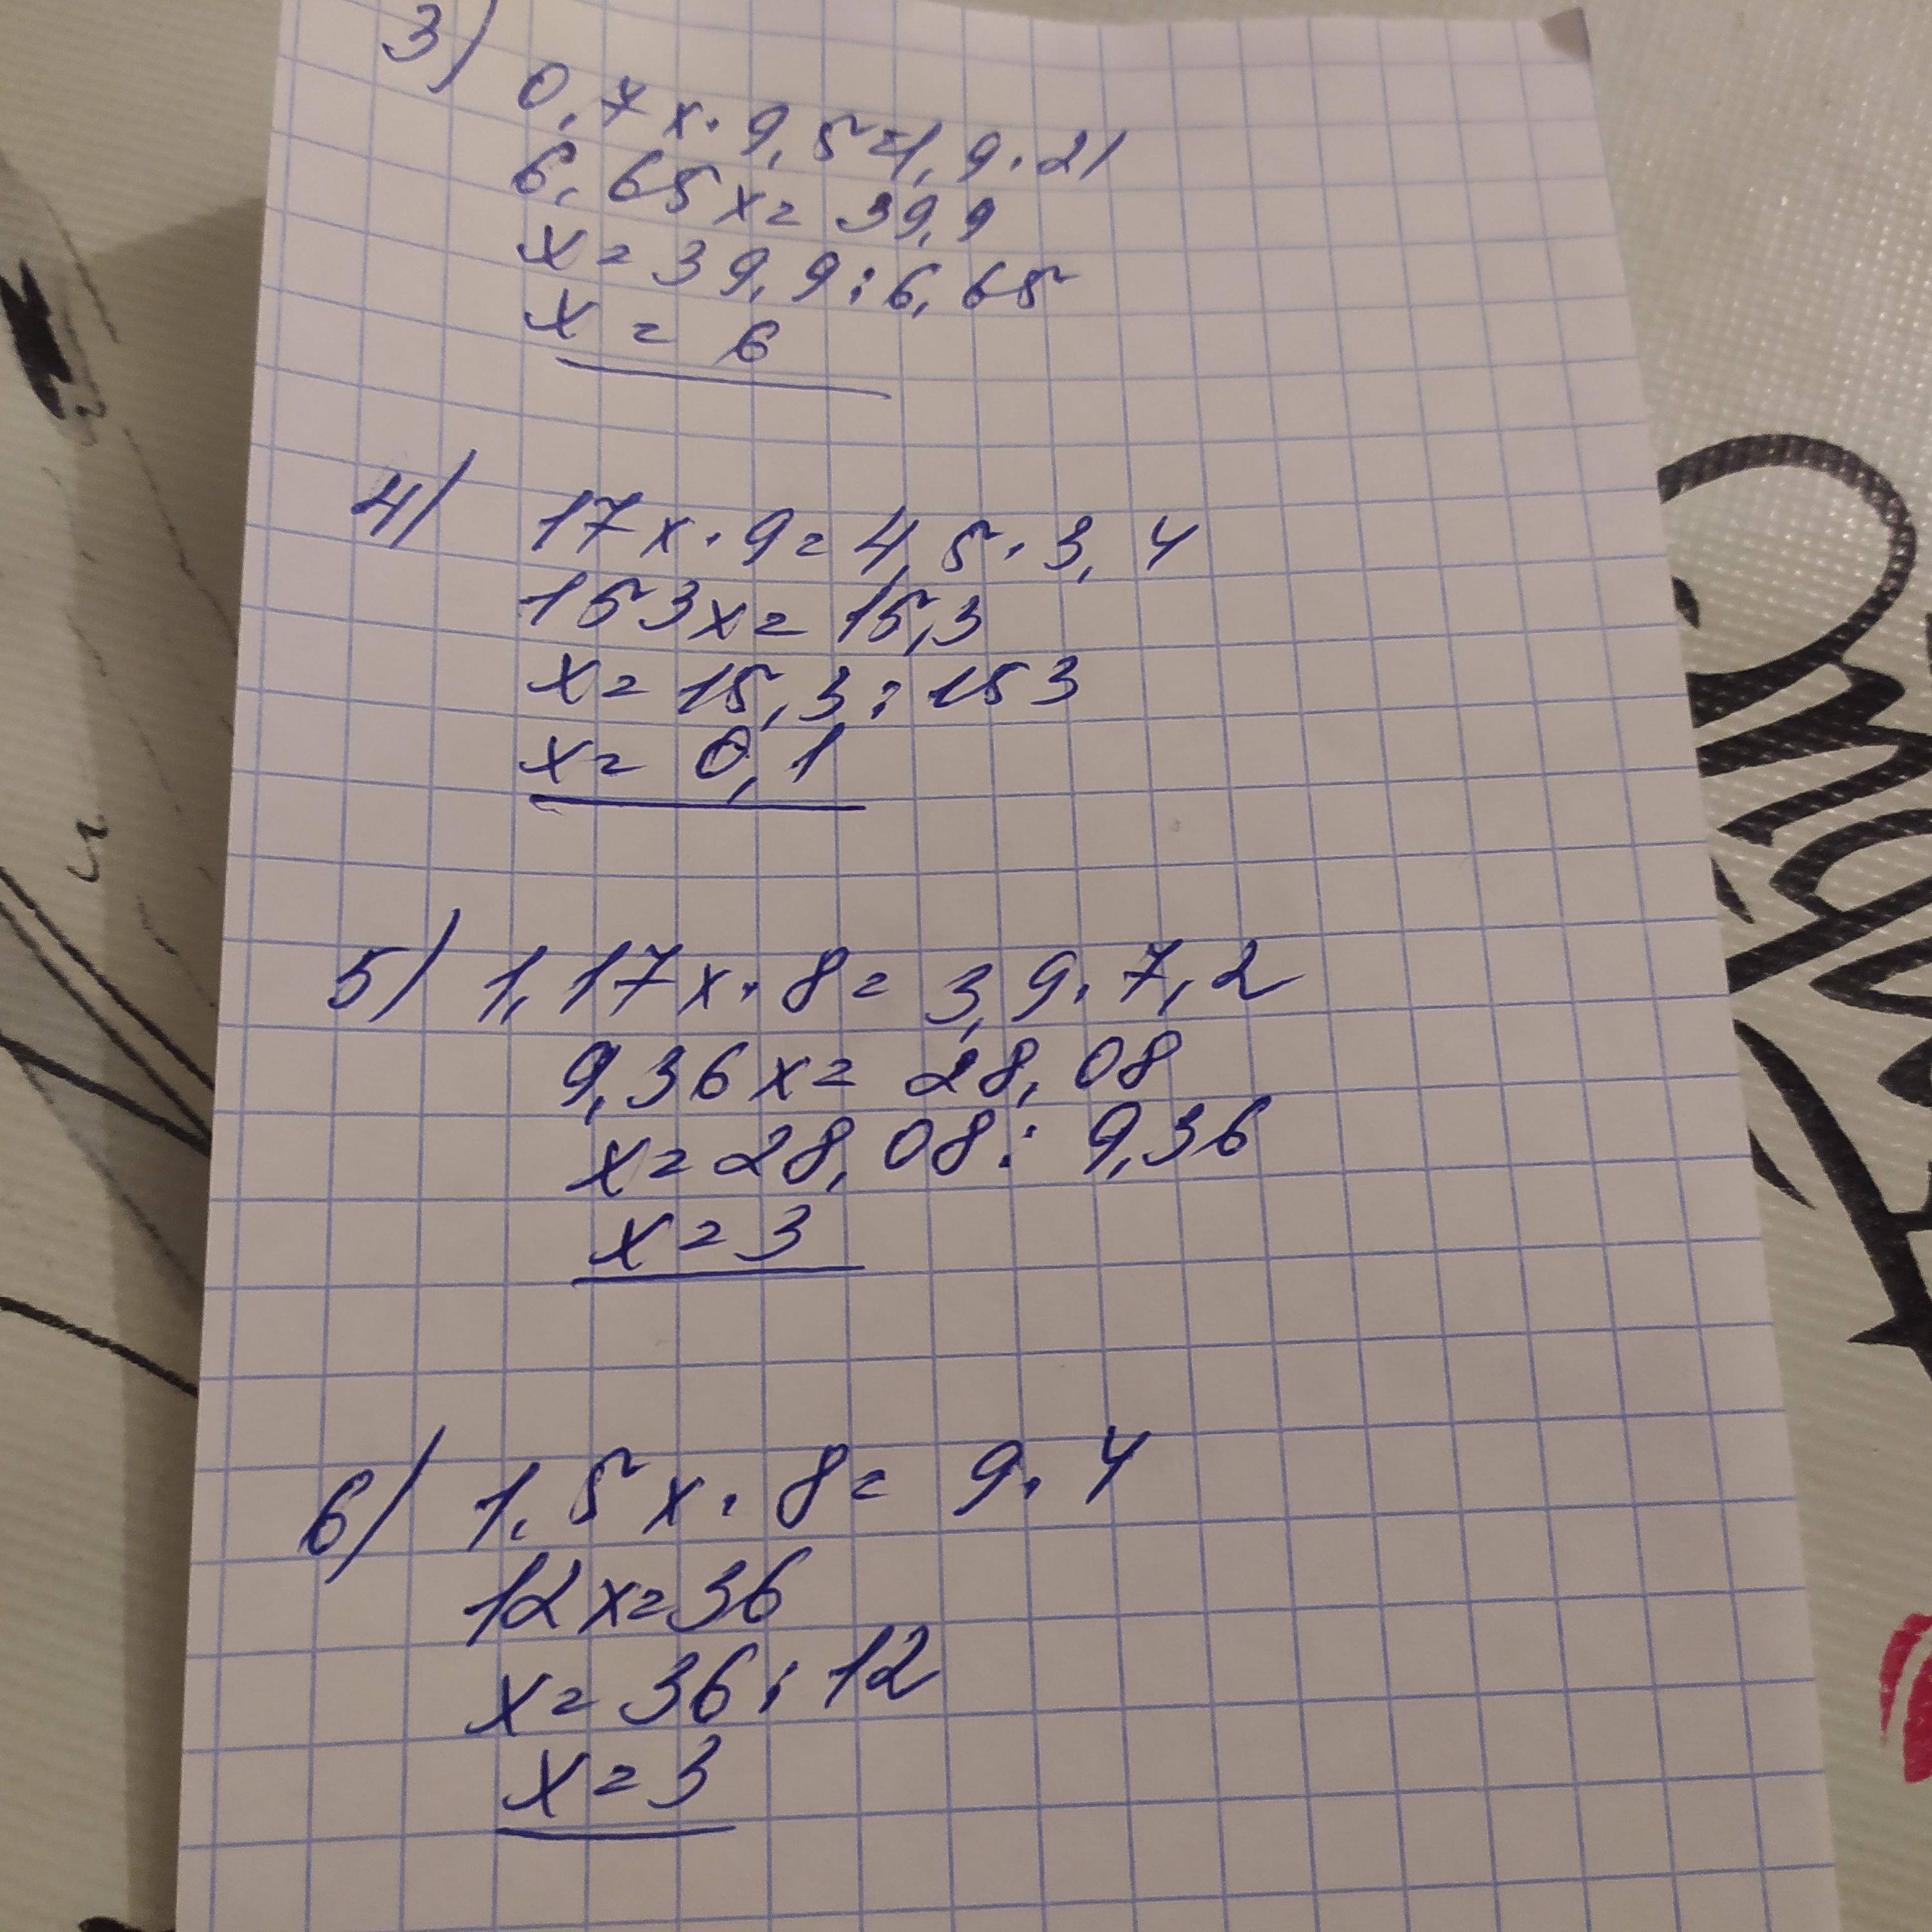 3)
0,7x·9,5=1,9·21
6,65x=39,9
x=39,9:6,65
x=6
4)
17x·9=4,5·3,4
153x=15,3
x=15,3:153
x=0,1
5) 1,17x·8=3,9·7,2
9,36x=28,08
x=28,08:9,36
x=3
6) 1,5x·8=9·4
12x=36
x=36:12
x=3